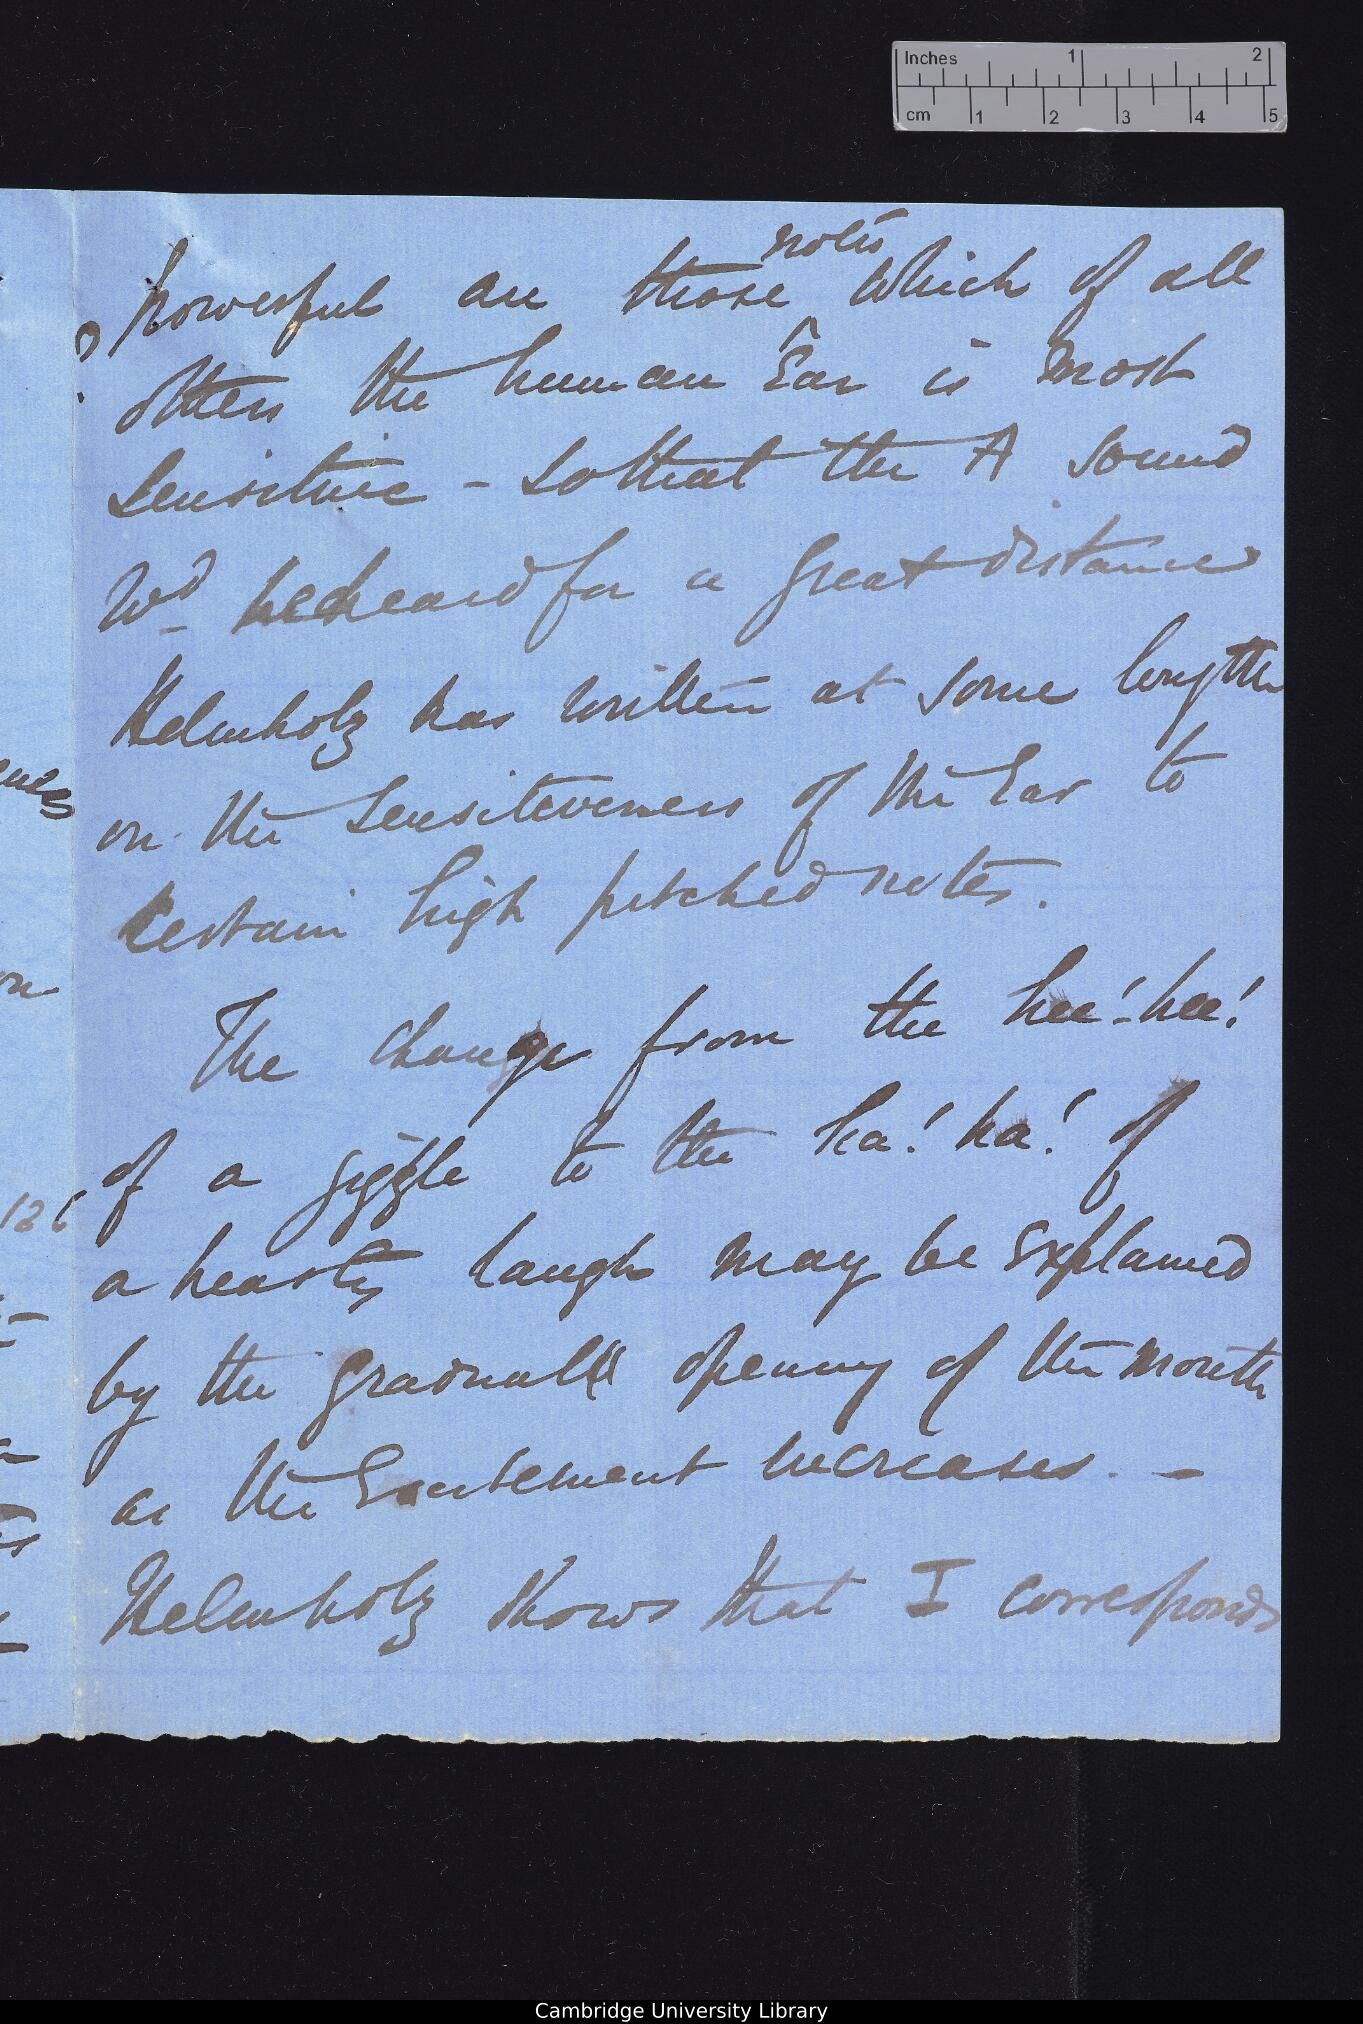 Inches 1 2
cm 1 2 3 4 5
notes
powerful are those which of all
others the human Ear is most
sensitive - so that the A sound
Wd be heard for a great distance
Helmholz has written at some length
on the sensitiveness of the Ear to
certain high pitched notes.
The change from the hee! hee!
of a giggle to the ha! ha! of
a hearty laugh may be explained
by the gradual opening of the mouth
as the Excitement increases. -
Helmholz shows that I corresponds
126
Cambridge University Library